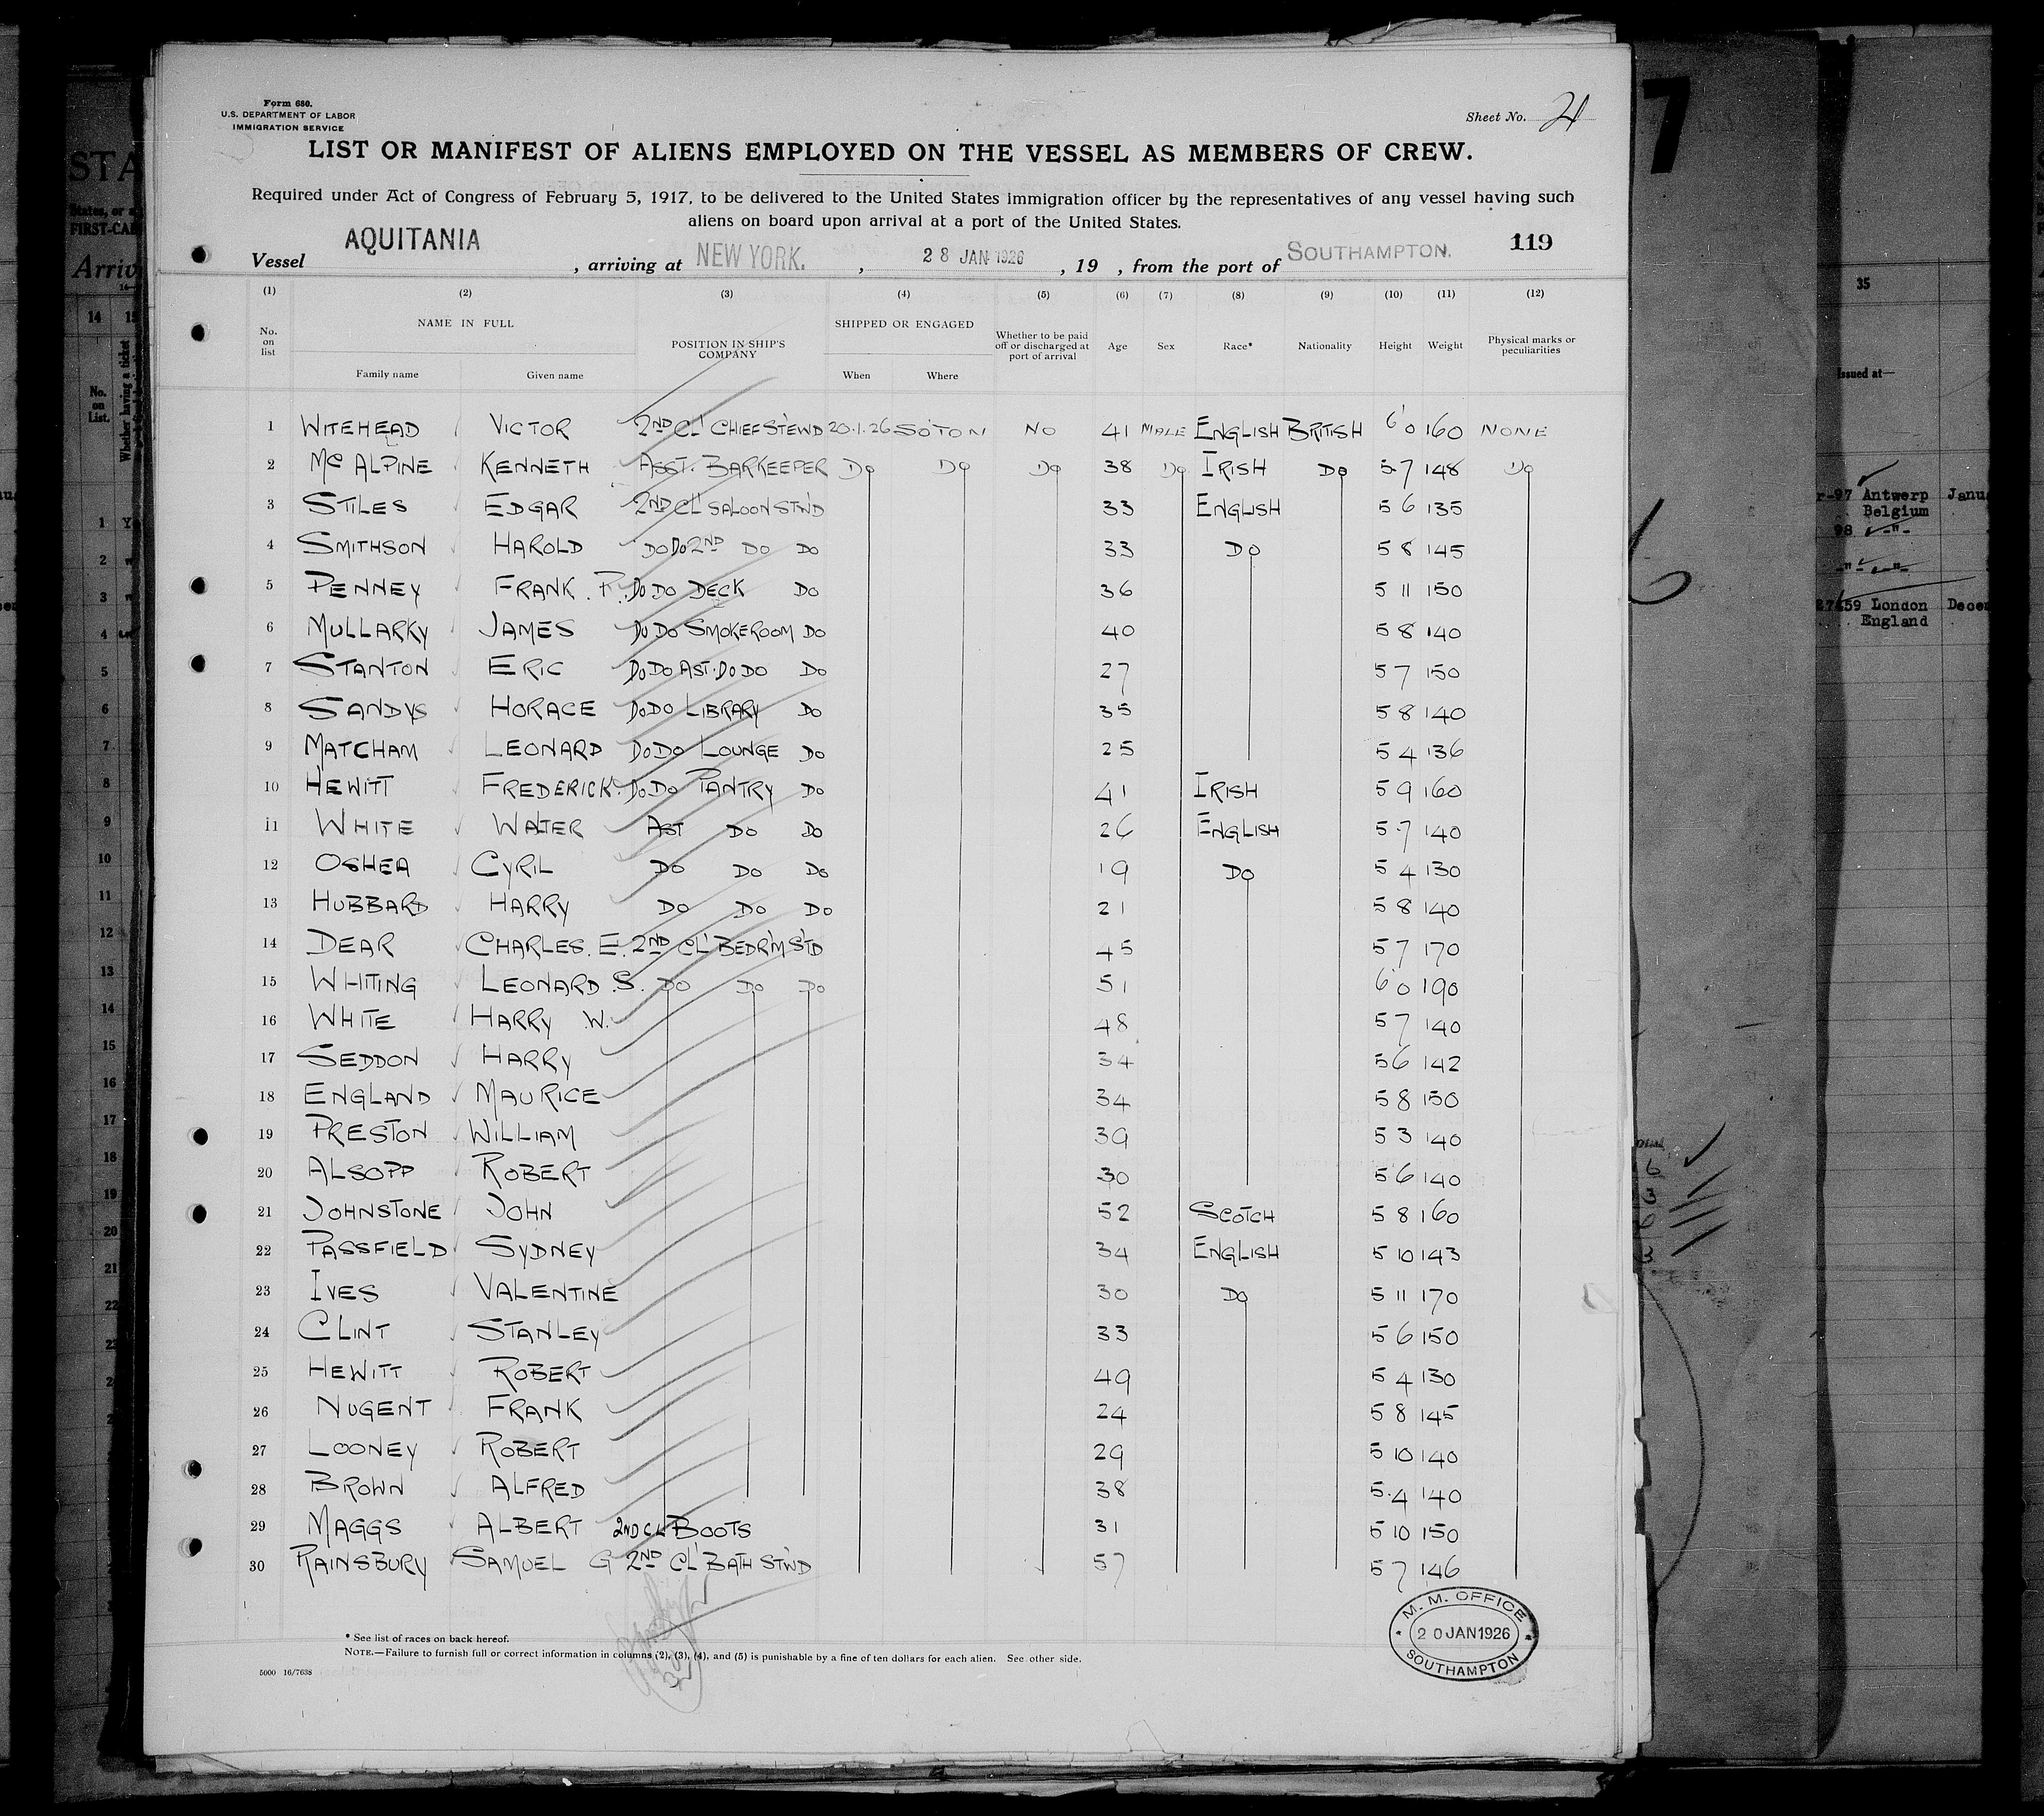 Form 680.
U.S. DEPARTMENT OF LABOR
IMMIGRATION SERVICE
Sheet No. 21
LIST OR MANIFEST OF ALIENS EMPLOYED ON THE VESSEL AS MEMBERS OF CREW.
Required under Act of Congress of February 5, 1917, to be delivered to the United States immigration officer by the representatives of any vessel having such
aliens on board upon arrival at a port of the United States.
119
Vessel AQUITANIA, arriving at NEW YORK., 28 JAN 1926, 19 , from the port of SOUTHAMPTON.
(1) (2) (3) (4) (5) (6) (7) (8) (9) (10) (11) (12)
No. on list NAME IN FULL Family name Given name POSITION IN SHIP'S COMPANY SHIPPED OR ENGAGED When Where Whether to be paid off or discharged at port of arrival Age Sex Race* Nationality Height Weight Physical marks or peculiarities
1 WITEHEAD VICTOR 2ND CL' CHIEF STEWD 20.1.26 SO'TON NO 41 MALE ENGLISH BRITISH 6'0 160 NONE
2 MC ALPINE KENNETH ASST. BARKEEPER DO DO DO 38 DO IRISH DO 5.7 148 DO
3 STILES EDGAR 2ND CL' SALOON STWD 33 ENGLISH 5 6 135
4 SMITHSON HAROLD DO DO 2ND DO DO 33 DO 5 8 145
5 PENNEY FRANK. R. DO DO DECK DO 36 5 11 150
6 MULLARKY JAMES DO DO SMOKEROOM DO 40 5 8 140
7 STANTON ERIC DO DO AST. DO DO DO 27 5 7 150
8 SANDYS HORACE DO DO LIBRARY DO 35 5 8 140
9 MATCHAM LEONARD DO DO LOUNGE DO 25 5 4 136
10 HEWITT FREDERICK. DO DO PANTRY DO 41 IRISH 5 9 160
11 WHITE WALTER AST DO DO 26 ENGLISH 5.7 140
12 OSHEA CYRIL DO DO DO 19 DO 5 4 130
13 HUBBARD HARRY DO DO DO 21 5 8 140
14 DEAR CHARLES. E. 2ND CL' BEDR'M STD 45 5 7 170
15 WHITING LEONARD. S. DO DO DO 51 6'0 190
16 WHITE HARRY W. 48 5 7 140
17 SEDDON HARRY 34 5 6 142
18 ENGLAND MAURICE 34 5 8 150
19 PRESTON WILLIAM 39 5 3 140
20 ALSOPP ROBERT 30 5 6 140
21 JOHNSTONE JOHN 52 SCOTCH 5 8 160
22 PASSFIELD SYDNEY 34 ENGLISH 5 10 143
23 IVES VALENTINE 30 DO 5 11 170
24 CLINT STANLEY 33 5 6 150
25 HEWITT ROBERT 49 5 4 130
26 NUGENT FRANK 24 5 8 145
27 LOONEY ROBERT 29 5 10 140
28 BROWN ALFRED 38 5.4 140
29 MAGGS ALBERT 2ND CL BOOTS 31 5 10 150
30 RAINSBURY SAMUEL G 2ND CL' BATH STWD 57 5 7 146
* See list of races on back hereof.
NOTE.—Failure to furnish full or correct information in columns (2), (3), (4), and (5) is punishable by a fine of ten dollars for each alien. See other side.
5000 16/7638
M. M. OFFICE
20 JAN 1926
SOUTHAMPTON
STA
States, or a
FIRST-CA
Arriv
14
No. on List.
Whether having a ticket
7
35
Issued at—
97 Antwerp
Belgium
98
London
England